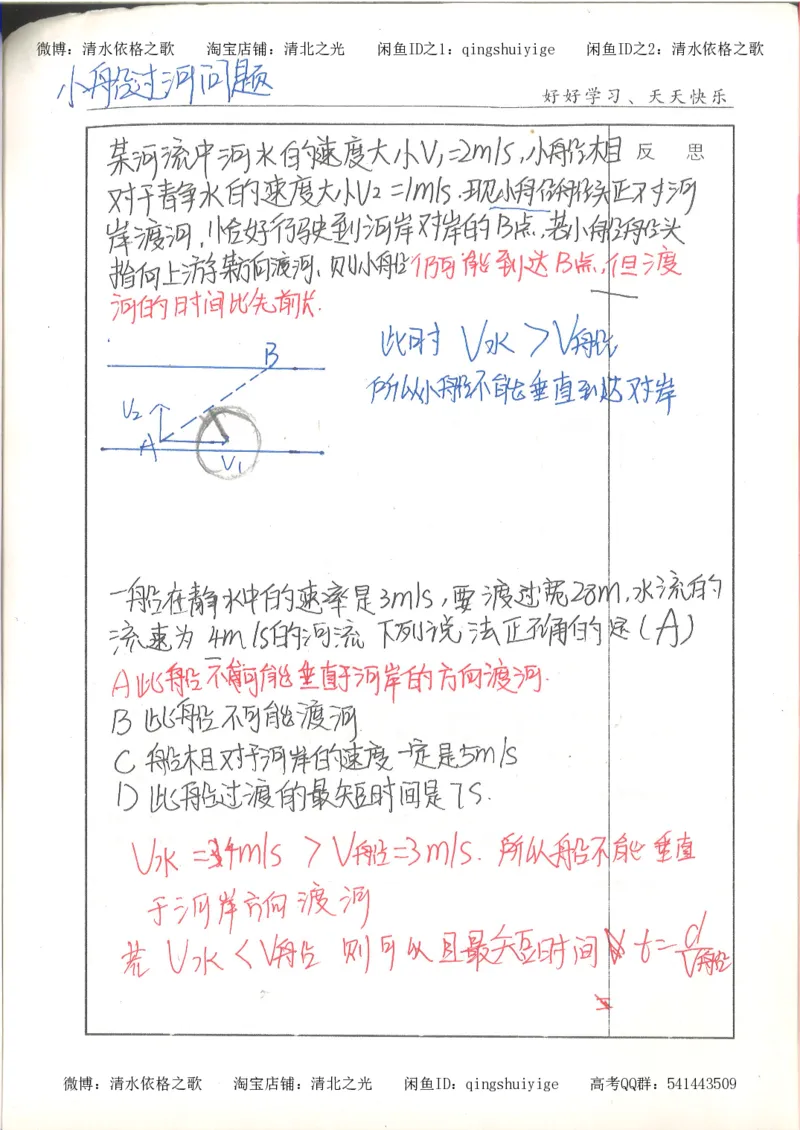 微博：清水依格之歌 淘宝店铺：清北之光 闲鱼ID之1：qingshuiyige 闲鱼ID之2：清水依格之歌
小船过河问题
好好学习、天天快乐
某河流中河水的速度大小V₁=2m/s,小船相
反 思
对于静水的速度大小V₂=1m/s.现小船船头正对河
岸渡河,恰好行驶到河岸对岸的B点,若小船船头
指向上游某方向渡河、则小船仍可能到达B点,但渡
河的时间比先前长.
此时 V水>V船
所以小船不能垂直到达对岸
B
V₂
A
V₁
一船在静水中的速率是3m/s,要渡过宽28m,水流的
流速为4m/s的河流 下列说法正确的是(A)
A 此船不可能垂直于河岸的方向渡河.
B 此船不可能渡河
C 船相对于河岸的速度一定是5m/s
D 此船过渡的最短时间是7s.
V水=4m/s >V船=3m/s. 所以船不能垂直
于河岸方向渡河
若 V水<V船 则可以且最短时间 t=d/V船
微博：清水依格之歌 淘宝店铺：清北之光 闲鱼ID：qingshuiyige 高考QQ群：541443509